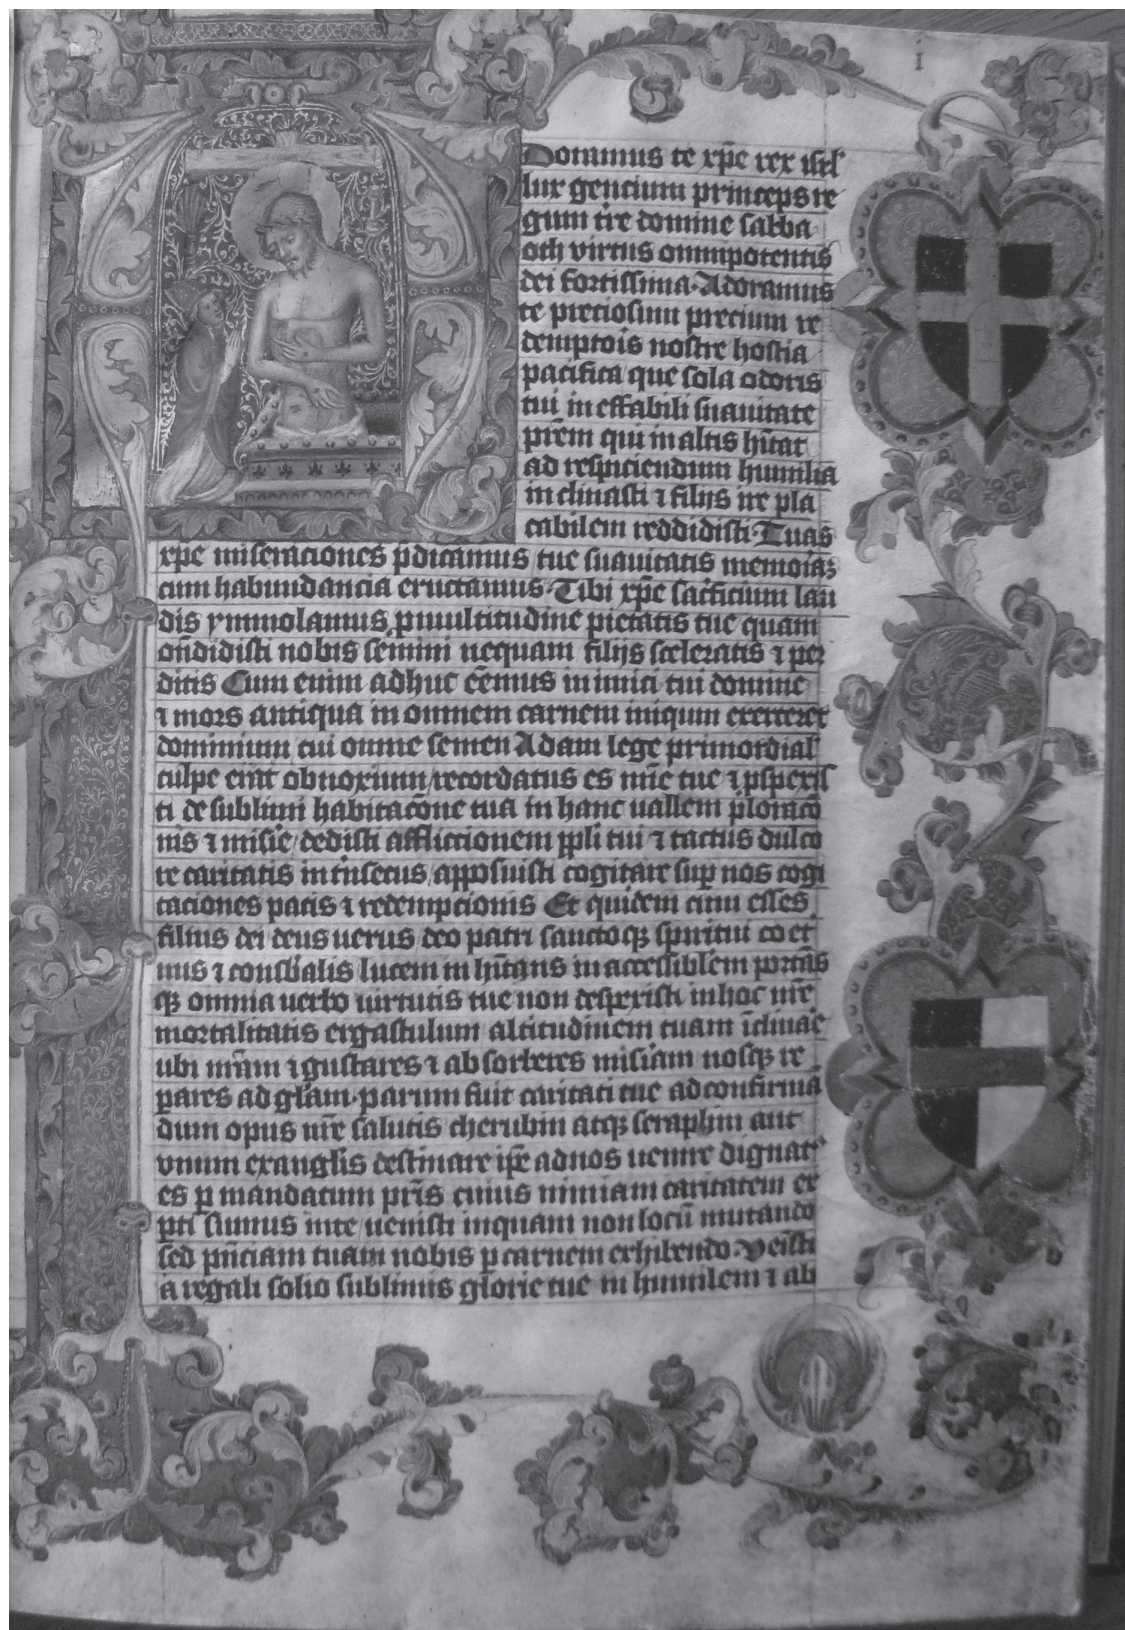 i
Doramus te xp̄e rex isrl̄
lux gencium princeps re
gum tr̄e domine saba
oth virtus omnipotentis
dei fortissima. Adoramus
te preciosum precium re
demptōis nostre hostia
pacifica que sola odoris
tui in effabili suauitate
pr̄em qui in altis hītat
ad respiciendum humilia
in clinasti ⁊ filijs ire pla
cabilem reddidisti. Tuas
xp̄e miseraciones p̄dicamus tue suauitatis memoīaꝫ
cum habundancia eructamus. Tibi xp̄e sacīficium lau
dis ymmolamus, p̄ multitudine pietatis tue quam
on̄didisti nobis semini nequam filijs sceleratis ⁊ per
ditis Cum enim adhuc eēmus inimici tui domine
⁊ mors antiqua in omnem carnem iniqum exerceret
dominium cui omne semen Adam lege primordial̄
culpe erat obnoxium/ recordatus es mīe tue ⁊ p̄spexis
ti de sublimi habitacōne tua in hanc uallem ploracō
nis ⁊ misīe/ dedisti affliccionem pp̄li tui ⁊ tactus dulco
re caritatis intrīsecus/ apposuisti cogitare sup̄ nos cogi
taciones pacis ⁊ redempcionis Et quidem cum esses
filius dei deus uerus deo patri sanctoqꝫ spiritui coet̄
nus ⁊ consb̄alis lucem inhītans in accessiblem portās
qꝫ omnia uerbo uirtutis tue non despexisti in hoc nr̄e
mortalitatis ergastulum altitudinem tuam īclinare
ubi nr̄am ⁊ gustares ⁊ absorberes misīam nosqꝫ re
pares ad glāam. parum fuit caritati tue ad confirmā
dum opus nr̄e salutis cherubin atqꝫ seraphin aut
vnum ex anglīs destinare ip̄e ad nos uenire dignat̄
es p̄ mandatum pr̄is cuius nimiam caritatem ex
p̄ti sumus in te/ uenisti inquam non locū mutando
sed pn̄ciam tuam nobis p̄ carnem exhibendo. Veīsti
a regali solio sublimis glorie tue in humilem ⁊ ab